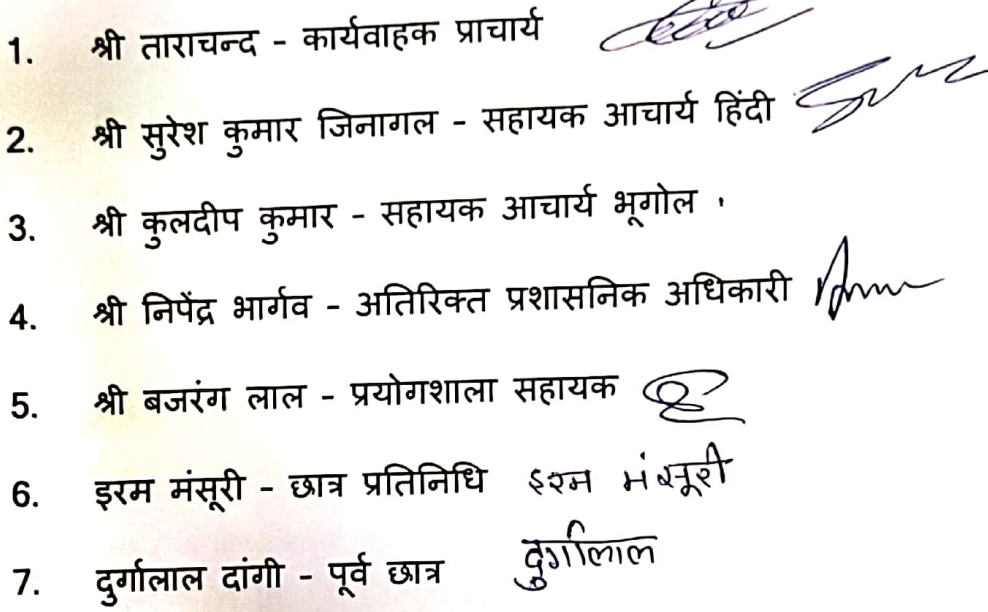 1. श्री ताराचन्द - कार्यवाहक प्राचार्य
2. श्री सुरेश कुमार जिनागल - सहायक आचार्य हिंदी
3. श्री कुलदीप कुमार - सहायक आचार्य भूगोल
4. श्री निपेंद्र भार्गव - अतिरिक्त प्रशासनिक अधिकारी
5. श्री बजरंग लाल - प्रयोगशाला सहायक
6. इरम मंसूरी - छात्र प्रतिनिधि इरम मंसूरी
7. दुर्गालाल दांगी - पूर्व छात्र दुर्गालाल